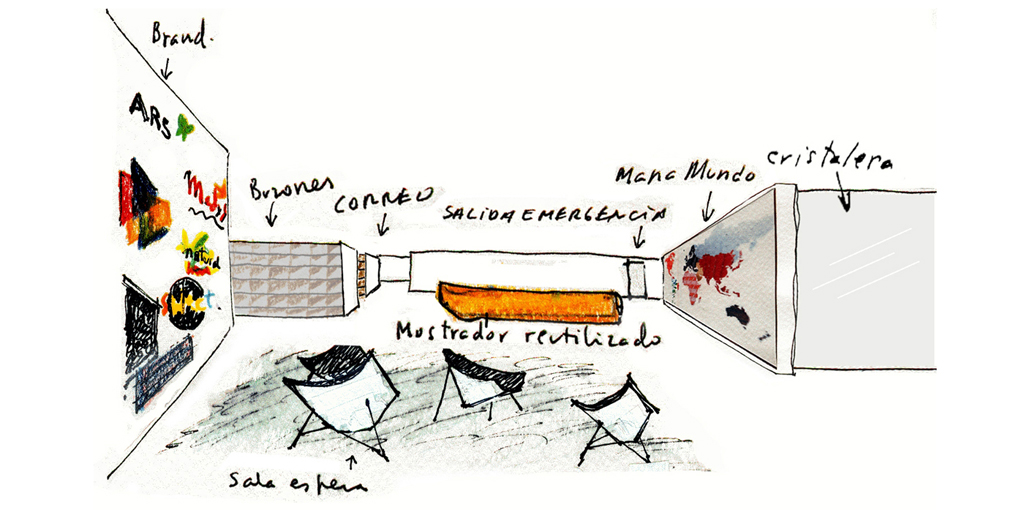 Brand.
ARS
Buzones
CORREO
SALIDA EMERGENCIA
Mapa Mundo
cristalera
natural
Mostrador reutilizado
Sala espera